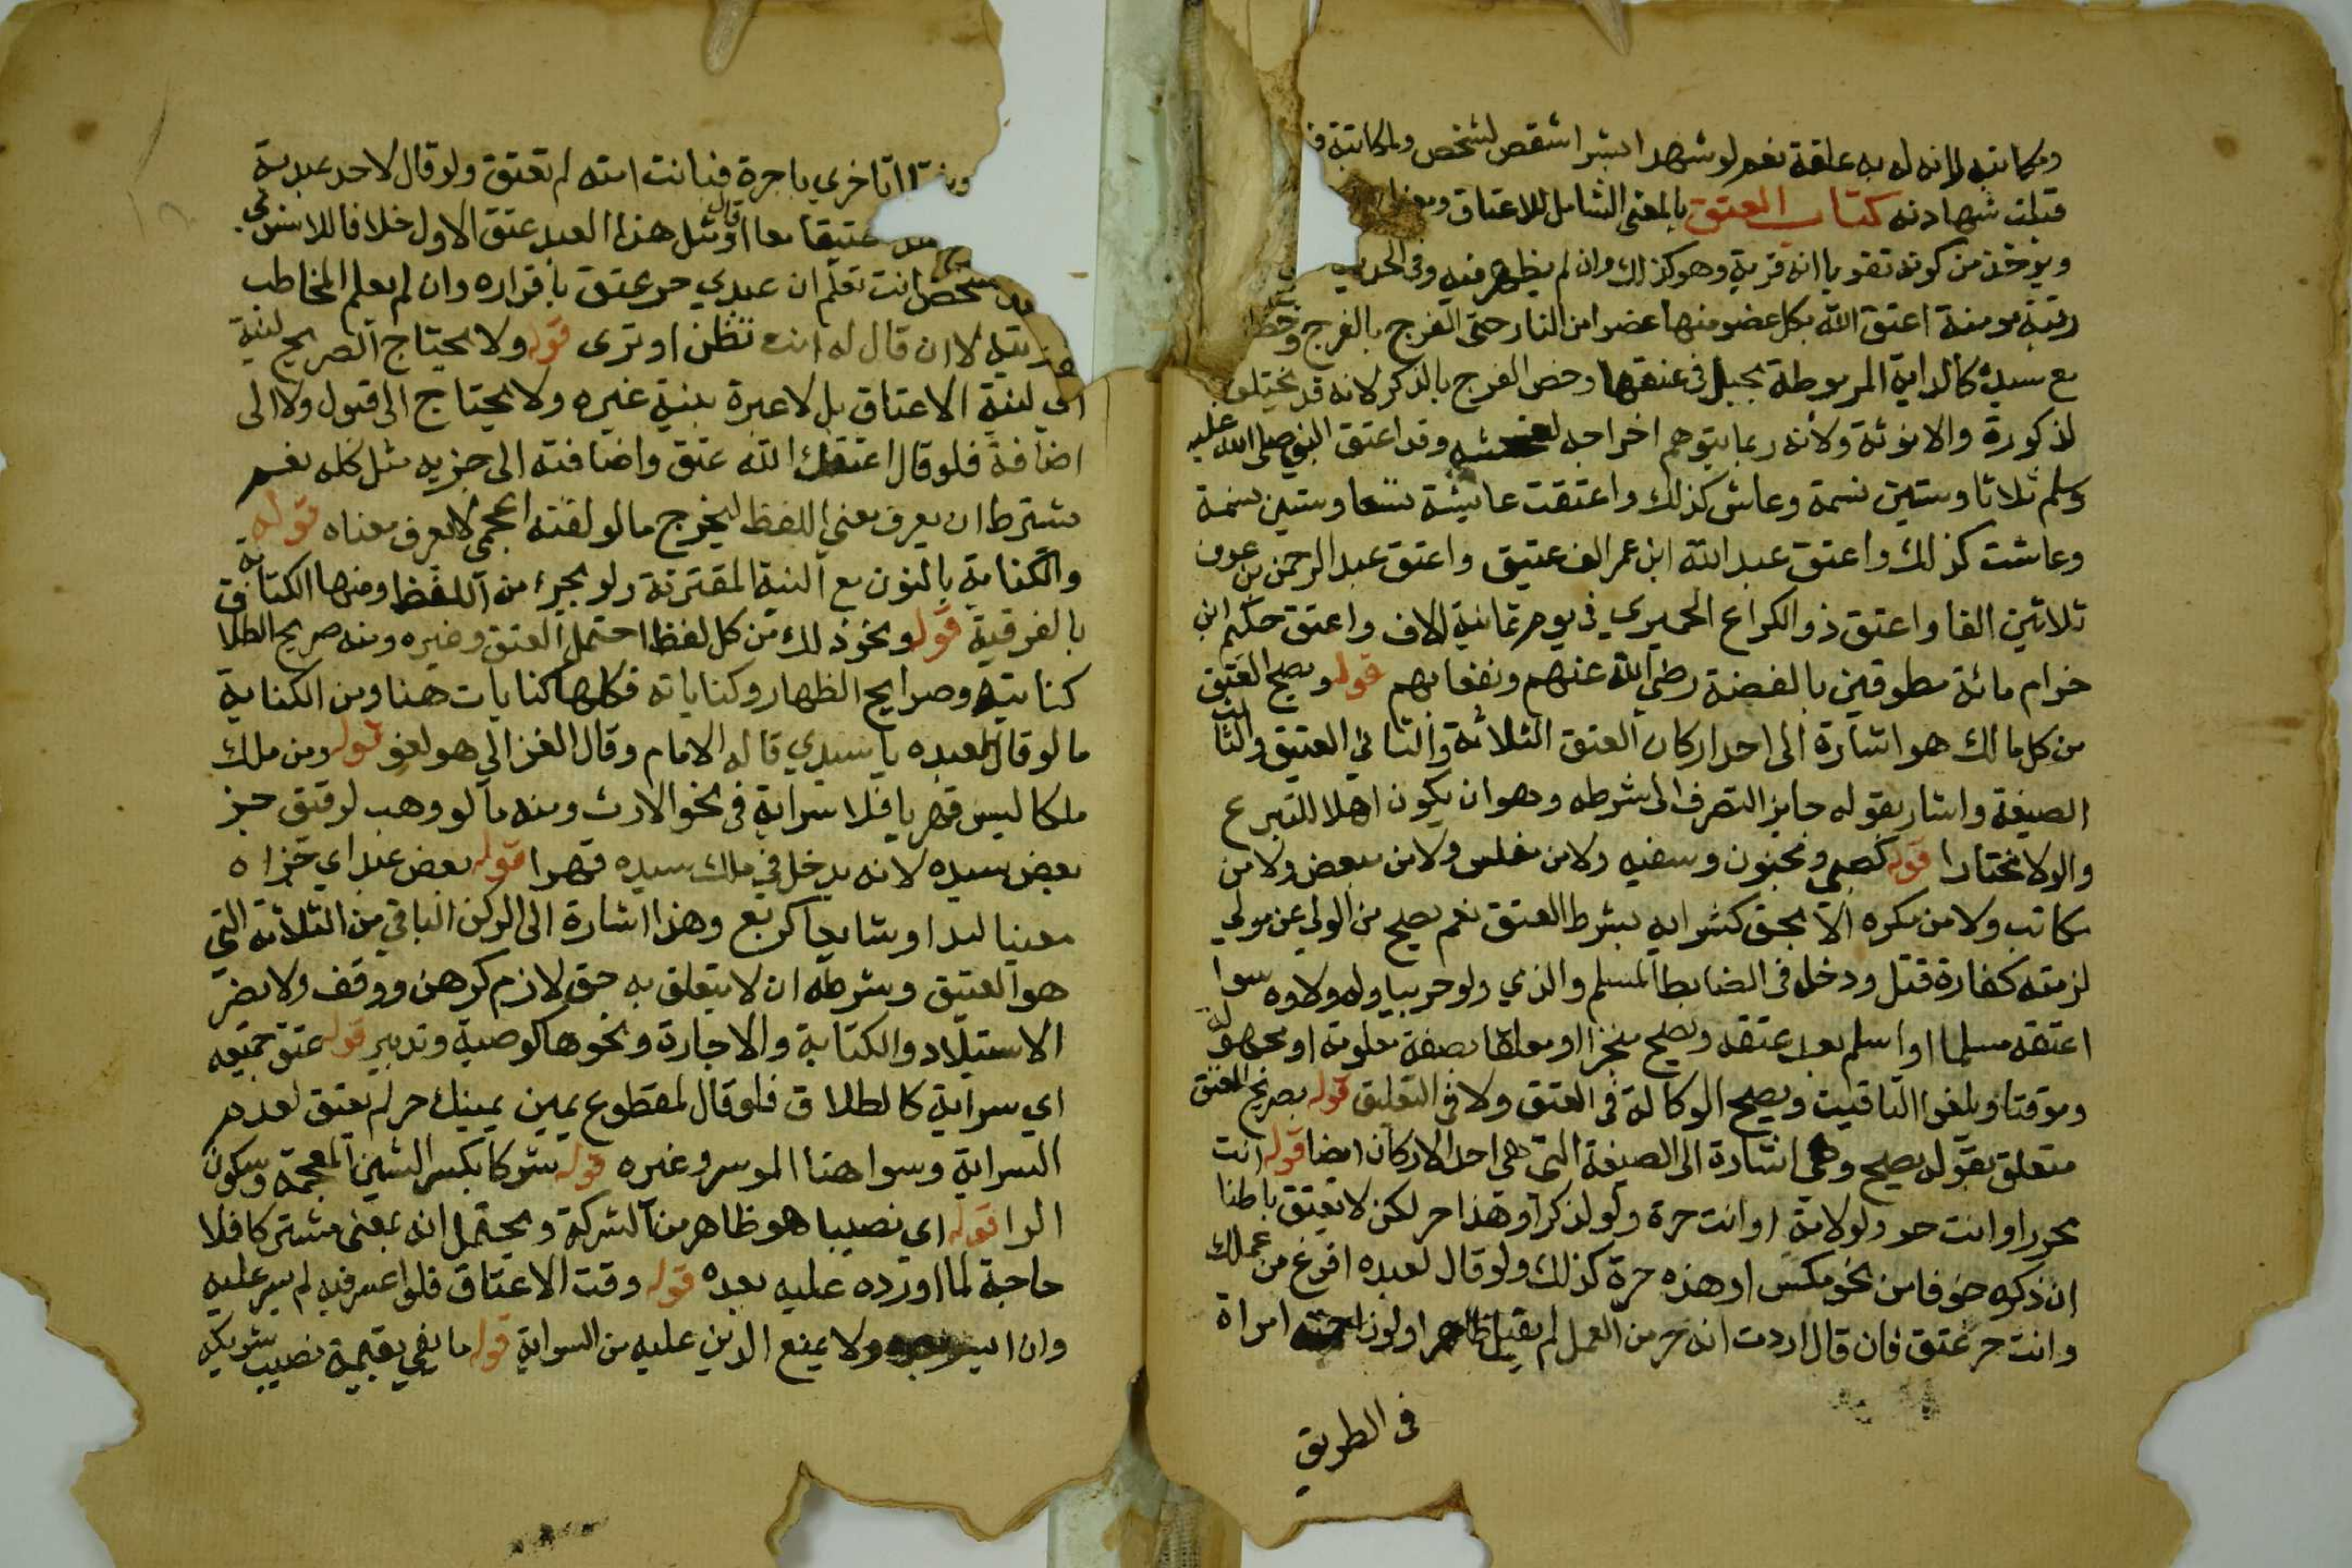 ومكاتبه لانه له به علقة نعم لو شهد ابشرا شقص لشخص ولمكاتبة
قبلت شهادته كتاب العتق بالمعنى الشامل للاعتاق
ويوخذ من كونه تقويا انه قربة وهو كذلك وان لم يظهر فيه وفي
رقبة مومنة اعتق الله بكل عضو منها عضوا من النار حتى الفرج بالفرج
مع سيده كالدابة المربوطة بحبل في عنقها وخص الفرج بالذكر لانه قد يختلف
لذكورة والانوثة ولانه ربما يتوهم اخراجه وقد اعتق النبي صلى الله عليه
وسلم ثلاثا وستين نسمة وعاش كذلك واعتقت عايشة تسعا وستين نسمة
وعاشت كذلك واعتق عبد الله ابن عمر الف عتيق واعتق عبد الرحمن بن عوف
ثلاثين الفا واعتق ذو الكراع الحميري في يوم ثمانية الاف واعتق حكيم ابن
خزام مائة مطوقين بالفضة رضي الله عنهم ونفعا بهم قوله ويصح العتق
من كل مالك هو اشارة الى احد اركان العتق الثلاثة والثاني العتيق والثالث
الصيغة واشار بقوله جايز التصرف الى شرطه وهو ان يكون اهلا للتبرع
والولا مختارا قوله كصبي ومجنون وسفيه ولا من مفلس ولا من مبعض ولا من
مكاتب ولا من مكره الا بحق كشرايه بشرط العتق نعم يصح من الولي عن مولي
لزمته كفارة قتل ودخل في الضابط المسلم والذي ولو حربيا وله ولاوه سوا
اعتقه مسلما او اسلم بعد عتقه ويصح منجزا او معلقا بصفة معلومة او مجهولة
وموقتا ويلغوا التاقيت ويصح الوكالة في العتق ولا في التعليق قوله بصريح العتق
متعلق بقوله يصح وهي اشارة الى الصيغة التي هي احد الاركان ايضا قوله انت
محرر او انت حر ولو لامة او انت حرة ولو لذكر او هذا حر لكن لا يعتق باطنا
ان ذكره خوفا من نحو مكس او هذه حرة كذلك ولو قال لعبده افرغ من عملك
وانت حر عتق فان قال اردت انه حر من العمل لم يقبل ظاهرا ولو زاحمته امراة
في الطريق
تاخري ياحرة فبانت امته لم تعتق ولو قال لاحد عبديه
عتيقا معا او قال مثل هذا العبد عتق الاول خلافا للاسنوي
شخص انت تعلم ان عبدي حر عتق باقراره وان لم يعلم المخاطب
لا ان قال له انت تظن او ترى قوله ولا يحتاج الصريح لنية
اي لنية الاعتاق بل لا عبرة بنية غيره ولا يحتاج الى قبول ولا الى
اضافة فلو قال اعتقك الله عتق واضافته الى جزيه مثل كله نعم
يشترط ان يعرف معنى اللفظ ليخرج ما لو لقنه اعجمي لا يعرف معناه قوله
والكناية بالنون مع النية المقترنة ولو بجزء من اللفظ ومنها الكتابة
بالفوقية قوله ونحو ذلك من كل لفظ احتمل العتق وغيره ومنه صريح الطلاق
كنايته وصرايح الظهار وكناياته فكلها كنايات هنا ومن الكناية
ما لو قال لعبده يا سيدي قاله الامام وقال الغزالي هو لغو قوله ومن ملك
ملكا ليس قهريا فلا سراية في نحو الارث ومنه ما لو وهب لرقيق جز
بعض سيده لانه يدخل في ملك سيده قهرا قوله بعض عبد اي جزاه
معينا ليد او شايعا كربع وهذا اشارة الى الركن الباقي من الثلاثة التي
هو العتيق وشرطه ان لا يتعلق به حق لازم كرهن ووقف ولا يضر
الاستيلاد والكتابة والاجارة ونحوها كوصية وتدبير قوله عتق جميعه
اي سراية كالطلاق فلو قال لمقطوع يمين يمينك حر لم يعتق لعدم
السراية وسوا هنا الموسر وغيره قوله شركا بكسر الشين المعجمة وسكون
الرا قوله اي نصيبا هو ظاهر من الشركة ويحتمل انه بمعنى مشتركا فلا
حاجة لما اورده عليه بعده قوله وقت الاعتاق فلو اعسر فيه لم يسر عليه
وان ايسر بعده ولا يمنع الدين عليه من السراية قوله ما يفي بقيمة نصيب شريكه